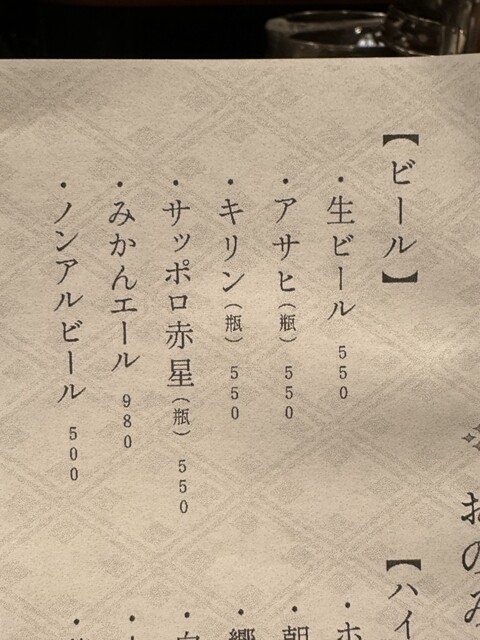 おのみ
【ビール】
・生ビール 550
・アサヒ(瓶) 550
・キリン(瓶) 550
・サッポロ赤星(瓶) 550
・みかんエール 980
・ノンアルビール 500
【ハイ
・ホ
・朝
・響
・白